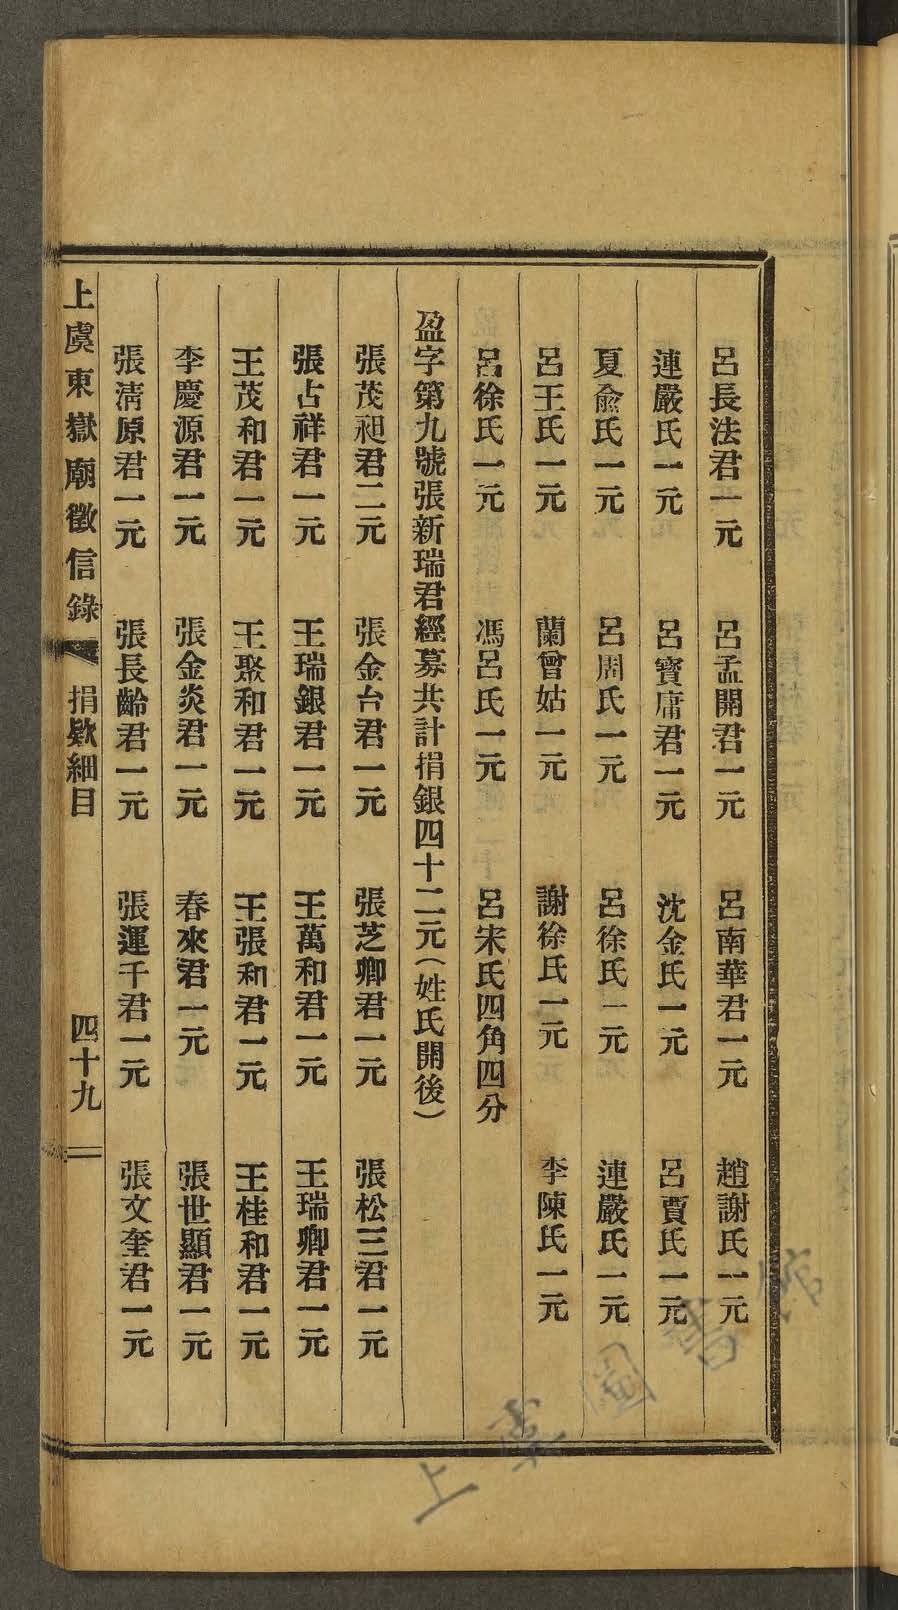 呂長法君一元　呂孟開君一元　呂南華君一元　趙謝氏一元
連嚴氏一元　呂寶庸君一元　沈金氏一元　呂賈氏一元
夏俞氏一元　呂周氏一元　呂徐氏一元　連嚴氏一元
呂王氏一元　蘭曾姑一元　謝徐氏一元　李陳氏一元
呂徐氏一元　馮呂氏一元　呂宋氏四角四分
盈字第九號張新瑞君經募共計捐銀四十二元（姓氏開後）
張茂昶君二元　張金台君一元　張芝卿君一元　張松三君一元
張占祥君一元　王瑞銀君一元　王萬和君一元　王瑞卿君一元
王茂和君一元　王聚和君一元　王張和君一元　王桂和君一元
李慶源君一元　張金炎君一元　春來君一元　張世顯君一元
張清原君一元　張長齡君一元　張運千君一元　張文奎君一元
上虞東嶽廟徵信錄　捐欵細目　四十九
上虞圖書館